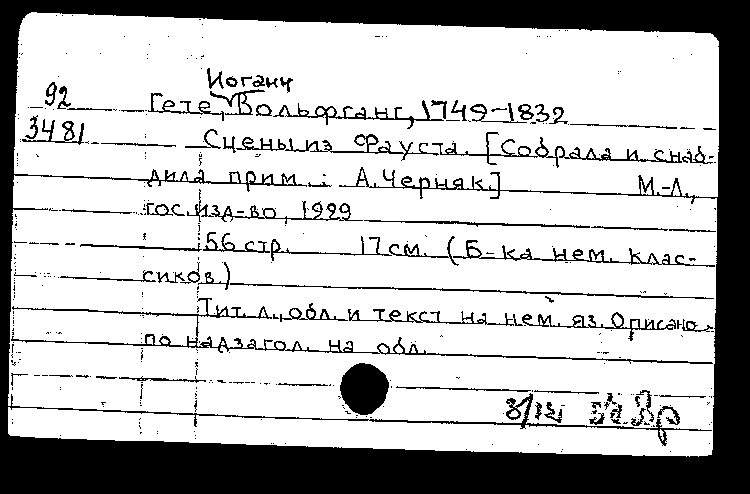 Иоганн
92 Гете, Вольфганг, 1749-1832
3481 Сцены из Фауста. [Собрала и снаб-
дила прим.: А.Черняк.] М.-Л.,
гос.изд-во, 1929
56 стр. 17см. (Б-ка нем. клас-
сиков.)
Тит. л., обл. и текст на нем. яз. Описано
по надзагол. на обл.